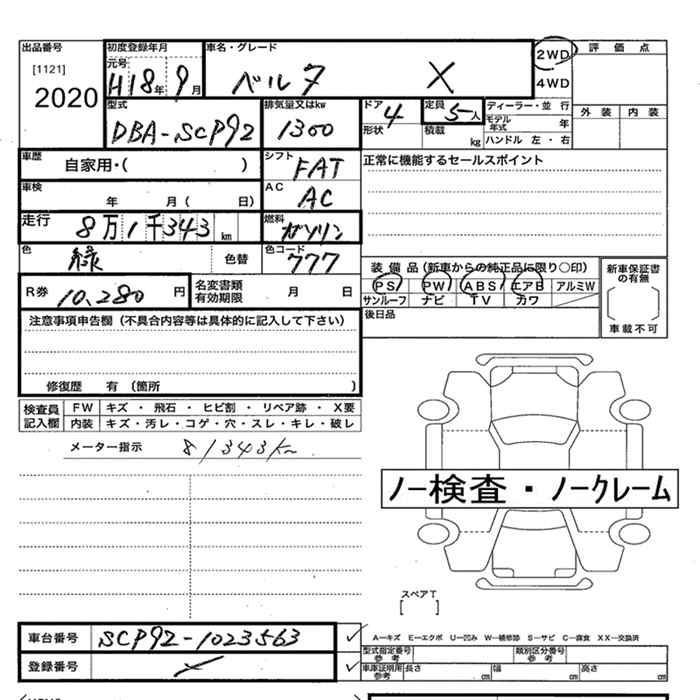 出品番号
[1121]
2020
初度登録年月
元号
H18年 9月
車名・グレード
ベルタ X
2WD
4WD
評価点
外装 内装
型式
DBA-SCP92
排気量又はkw
1300
ドア
4
形状
定員
5人
積載
kg
ディーラー・並行
モデル年式 年
ハンドル 左・右
車歴
自家用・( )
シフト
FAT
正常に機能するセールスポイント
車検
年 月( 日)
AC
AC
走行
8万1千343km
燃料
ガソリン
色
緑
色替
色コード
777
R券
10,280円
名変書類有効期限
月 日
装備品(新車からの純正品に限り○印)
PS PW ABS エアB アルミW
サンルーフ ナビ TV カワ
後日品
新車保証書の有無
車載不可
注意事項申告欄(不具合内容等は具体的に記入して下さい)
修復歴 有(箇所 )
検査員記入欄
FW キズ・飛石・ヒビ割・リペア跡・X要
内装 キズ・汚レ・コゲ・穴・スレ・キレ・破レ
メーター指示 81343km
ノー検査・ノークレーム
スペアT
[ ]
車台番号
SCP92-1023563
登録番号
A―キズ E―エクボ U―凹み W―補修跡 S―サビ C―腐食 XX―交換済
型式指定番号 参考
類別区分番号 参考
車庫証明所 参考
長さ cm 幅 cm 高さ cm